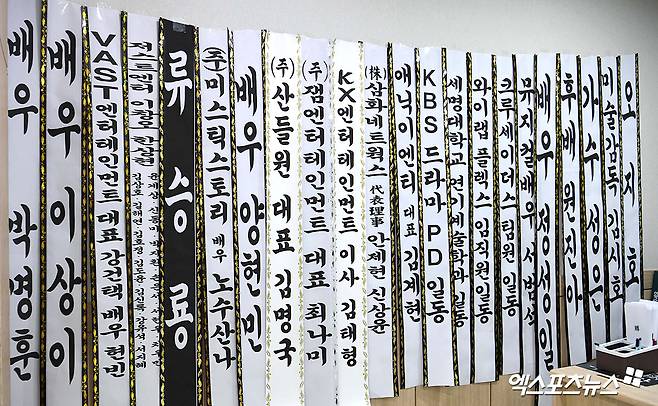 배우 박명훈
배우 이상이
VAST엔터테인먼트 대표 강건택 배우 현빈
류승룡
(주)미스틱스토리 배우 노수산나
배우 양현빈
(주)산들원 대표 김명국
(주)잼엔터테인먼트 대표 최나미
KX엔터테인먼트 이사 김태형
(株)삼화네트웍스 代表理事 안제현 신상윤
애닉이엔티 대표 김계현
KBS 드라마 PD 일동
세명대학교 연기예술학과 일동
와이랩 플렉스 임직원 일동
크루세이더스 팀원 일동
뮤지컬배우 서범석
배우 정성일
후배 원진아
가수 성은
미술감독 김시호
오지호
엑스포츠뉴스